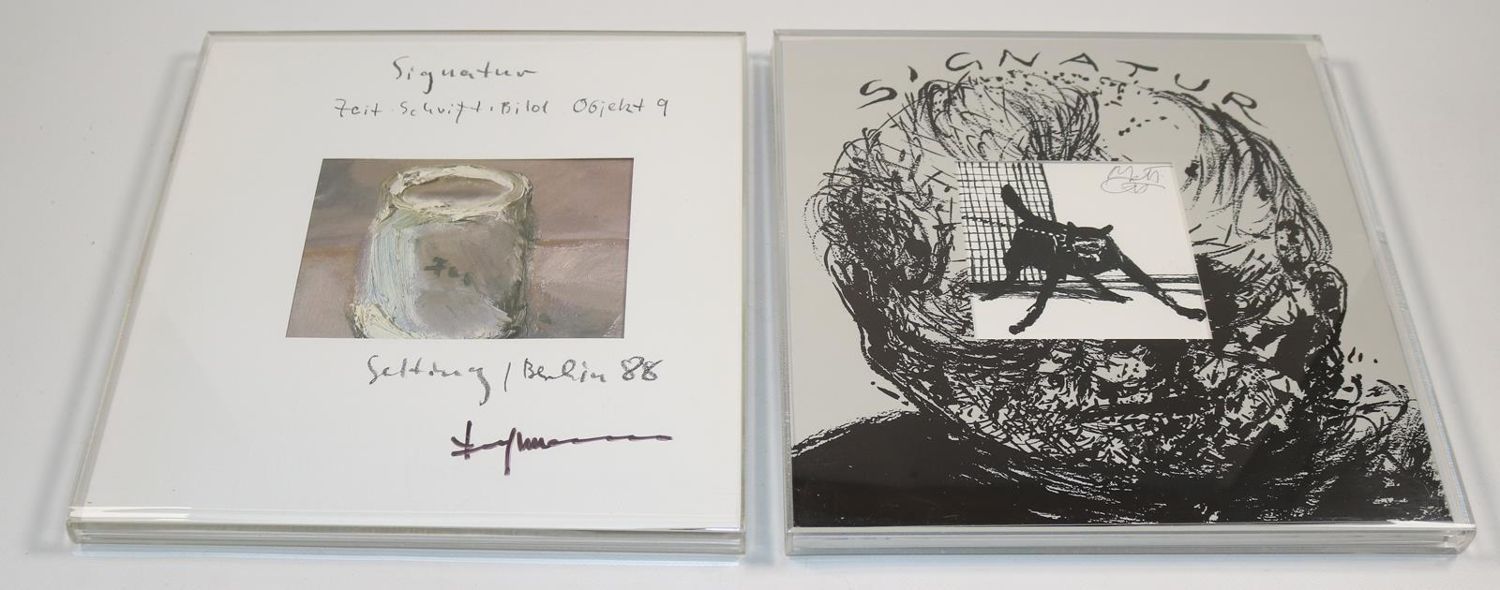 Signatur
Zeit·Schrift·Bild Objekt 9
Berlin 88
SIGNATUR